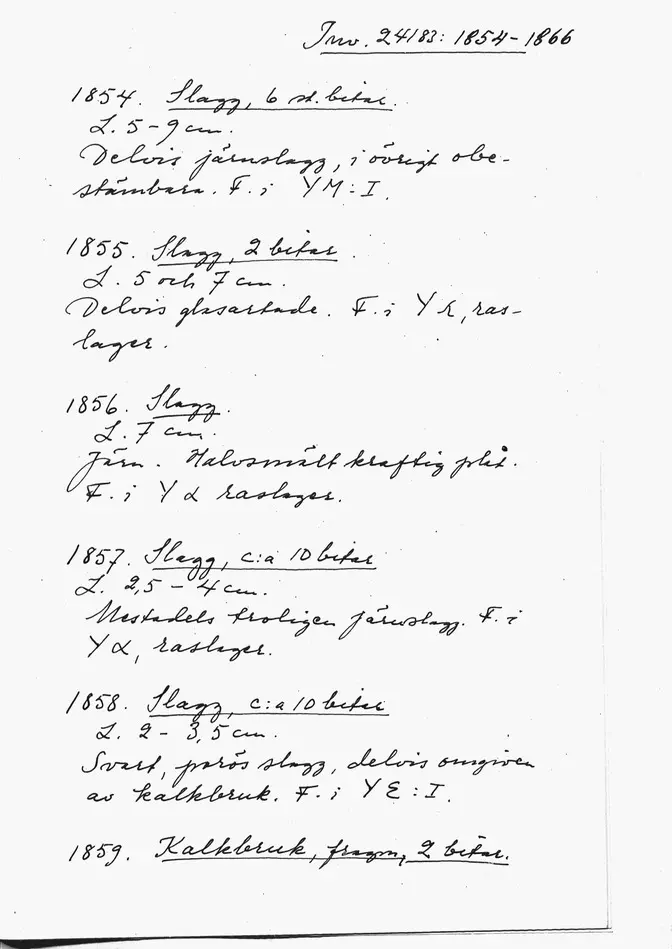 Inv. 24183: 1854-1866
1854. Slagg, 6 st. bitar.
L. 5-9 cm.
Delvis järnslagg, i övrigt obe-
stämbara. F. i YM:I.
1855. Slagg, 2 bitar.
L. 5 och 7 cm.
Delvis glasartade. F. i Y α, ras-
lager.
1856. Slagg.
L. 7 cm.
Järn. Halvsmält kraftig plåt.
F. i Y α raslager.
1857. Slagg, c:a 10 bitar
L. 2,5 - 4 cm.
Mestadels troligen järnslagg. F. i
Y α, raslager.
1858. Slagg, c:a 10 bitar
L. 2 - 3,5 cm.
Svart, porös slagg, delvis omgiven
av kalkbruk. F. i Y E:I.
1859. Kalkbruk, fragm, 2 bitar.